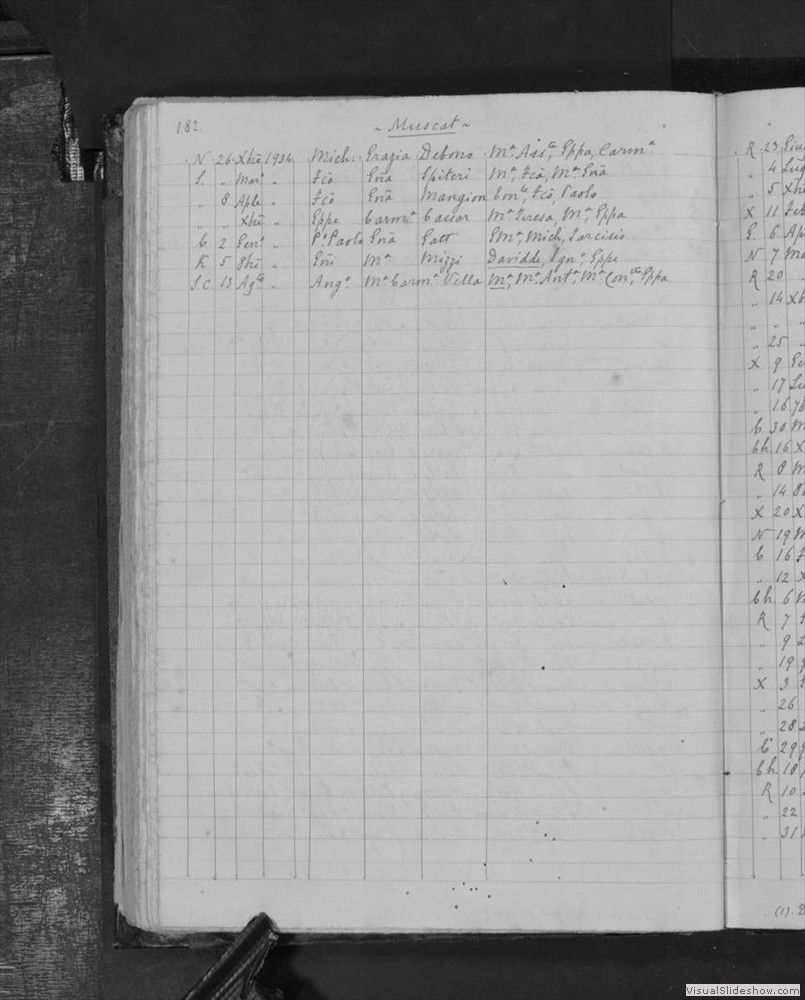 182.
~ Muscat ~
N 26 Xbrē 1934 Mich: Grazia Debono Mª Assᵗᵃ, Gppa, Carmª
S. " Marº " Fcō Gnā Spiteri Mª, Fcā, Mª Gnā
" 8 Aple " Fcō Gnā Mangion Emˡᵉ, Fcō, Paolo
" " Xbrē " Gppe Carmªª Cassar Mª Teresa, Mª, Gppa
C 2 Genº " Pº Paolo Gnā Gatt Emª, Mich, Tarcisio
K 5 8brē " Gñi Mª Mizzi Davidde, Ignº, Gppe
S.C. 13 Agᵗᵒ " Angº Mª Carmª Vella Mª, Mª Antª, Mª Conᵗᵃ, Gppa
R 23 Giu
" 4 Lug
" 5 Xbrē
X 11 Feb
G. 6 Ap
N 7 Ma
R 20
" 14 Xb
" " "
" 25 "
X 9 Ge
" 17 Lu
" 16 7b
C 30 M
Ch. 16 X
R 8 M
" 14 8
X 20 X
N 19 M
C 16 F
" 12 X
Ch. 6 M
R 7
" 9
" 19
X 3
" 26
" 28
C 29
Ch. 18
R 10
" 22
" 31
(1).
VisualSlideshow.com